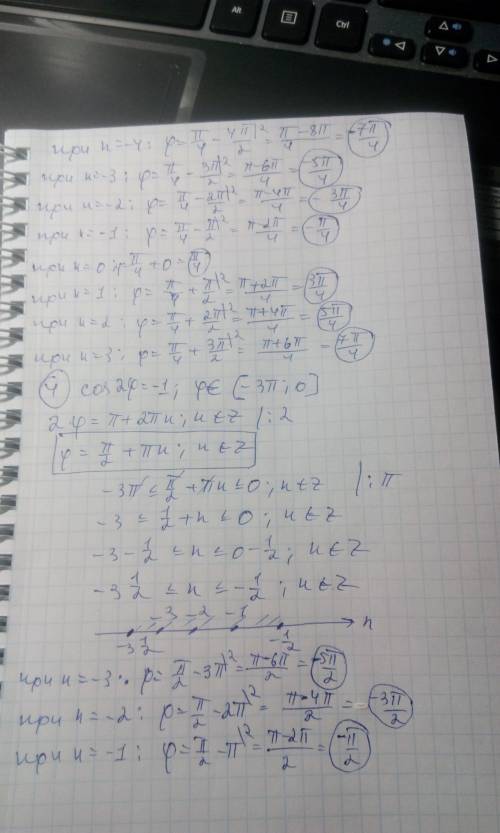 Alt
Ctrl
при n=-4: φ=π/4 - 4π/2|² = π-8π/4 = -7π/4
при n=-3: φ=π/4 - 3π/2|² = π-6π/4 = -5π/4
при n=-2: φ=π/4 - 2π/2|² = π-4π/4 = -3π/4
при n=-1: φ=π/4 - π/2|² = π-2π/4 = -π/4
при n=0: φ=π/4 + 0 = π/4
при n=1: φ=π/4 + π/2|² = π+2π/4 = 3π/4
при n=2: φ=π/4 + 2π/2|² = π+4π/4 = 5π/4
при n=3: φ=π/4 + 3π/2|² = π+6π/4 = 7π/4
4 cos2φ=-1; φ∈[-3π;0]
2φ=π+2πn; n∈Z /:2
φ=π/2+πn; n∈Z
-3π≤π/2+πn≤0; n∈Z /:π
-3≤1/2+n≤0; n∈Z
-3-1/2≤n≤0-1/2; n∈Z
-3 1/2≤n≤-1/2; n∈Z
-3 -2 -1
n
-3 1/2 -1/2
при n=-3: φ=π/2-3π|²=π-6π/2=-5π/2
при n=-2: φ=π/2-2π|²=π-4π/2=-3π/2
при n=-1: φ=π/2-π|²=π-2π/2=-π/2